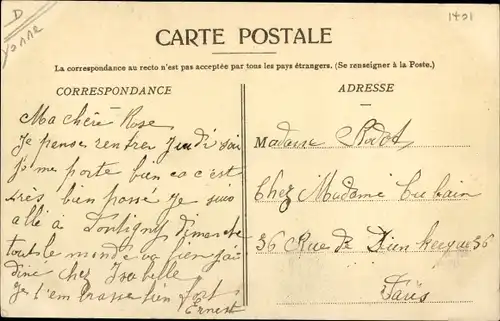 D
Yonne
1401
CARTE POSTALE
La correspondance au recto n'est pas acceptée par tous les pays étrangers. (Se renseigner à la Poste.)
CORRESPONDANCE
Ma chère Rose
Je pense rentrer Jeudi soir
je me porte bien ca c'est
très bien passé je suis
allé à Pontigny dimanche
tout le monde va bien j'ai
diné chez Isabelle
Je t'embrasse bien fort
Ernest
ADRESSE
Madame
Chez Madame
36 Rue de Dunkerque 36
Paris